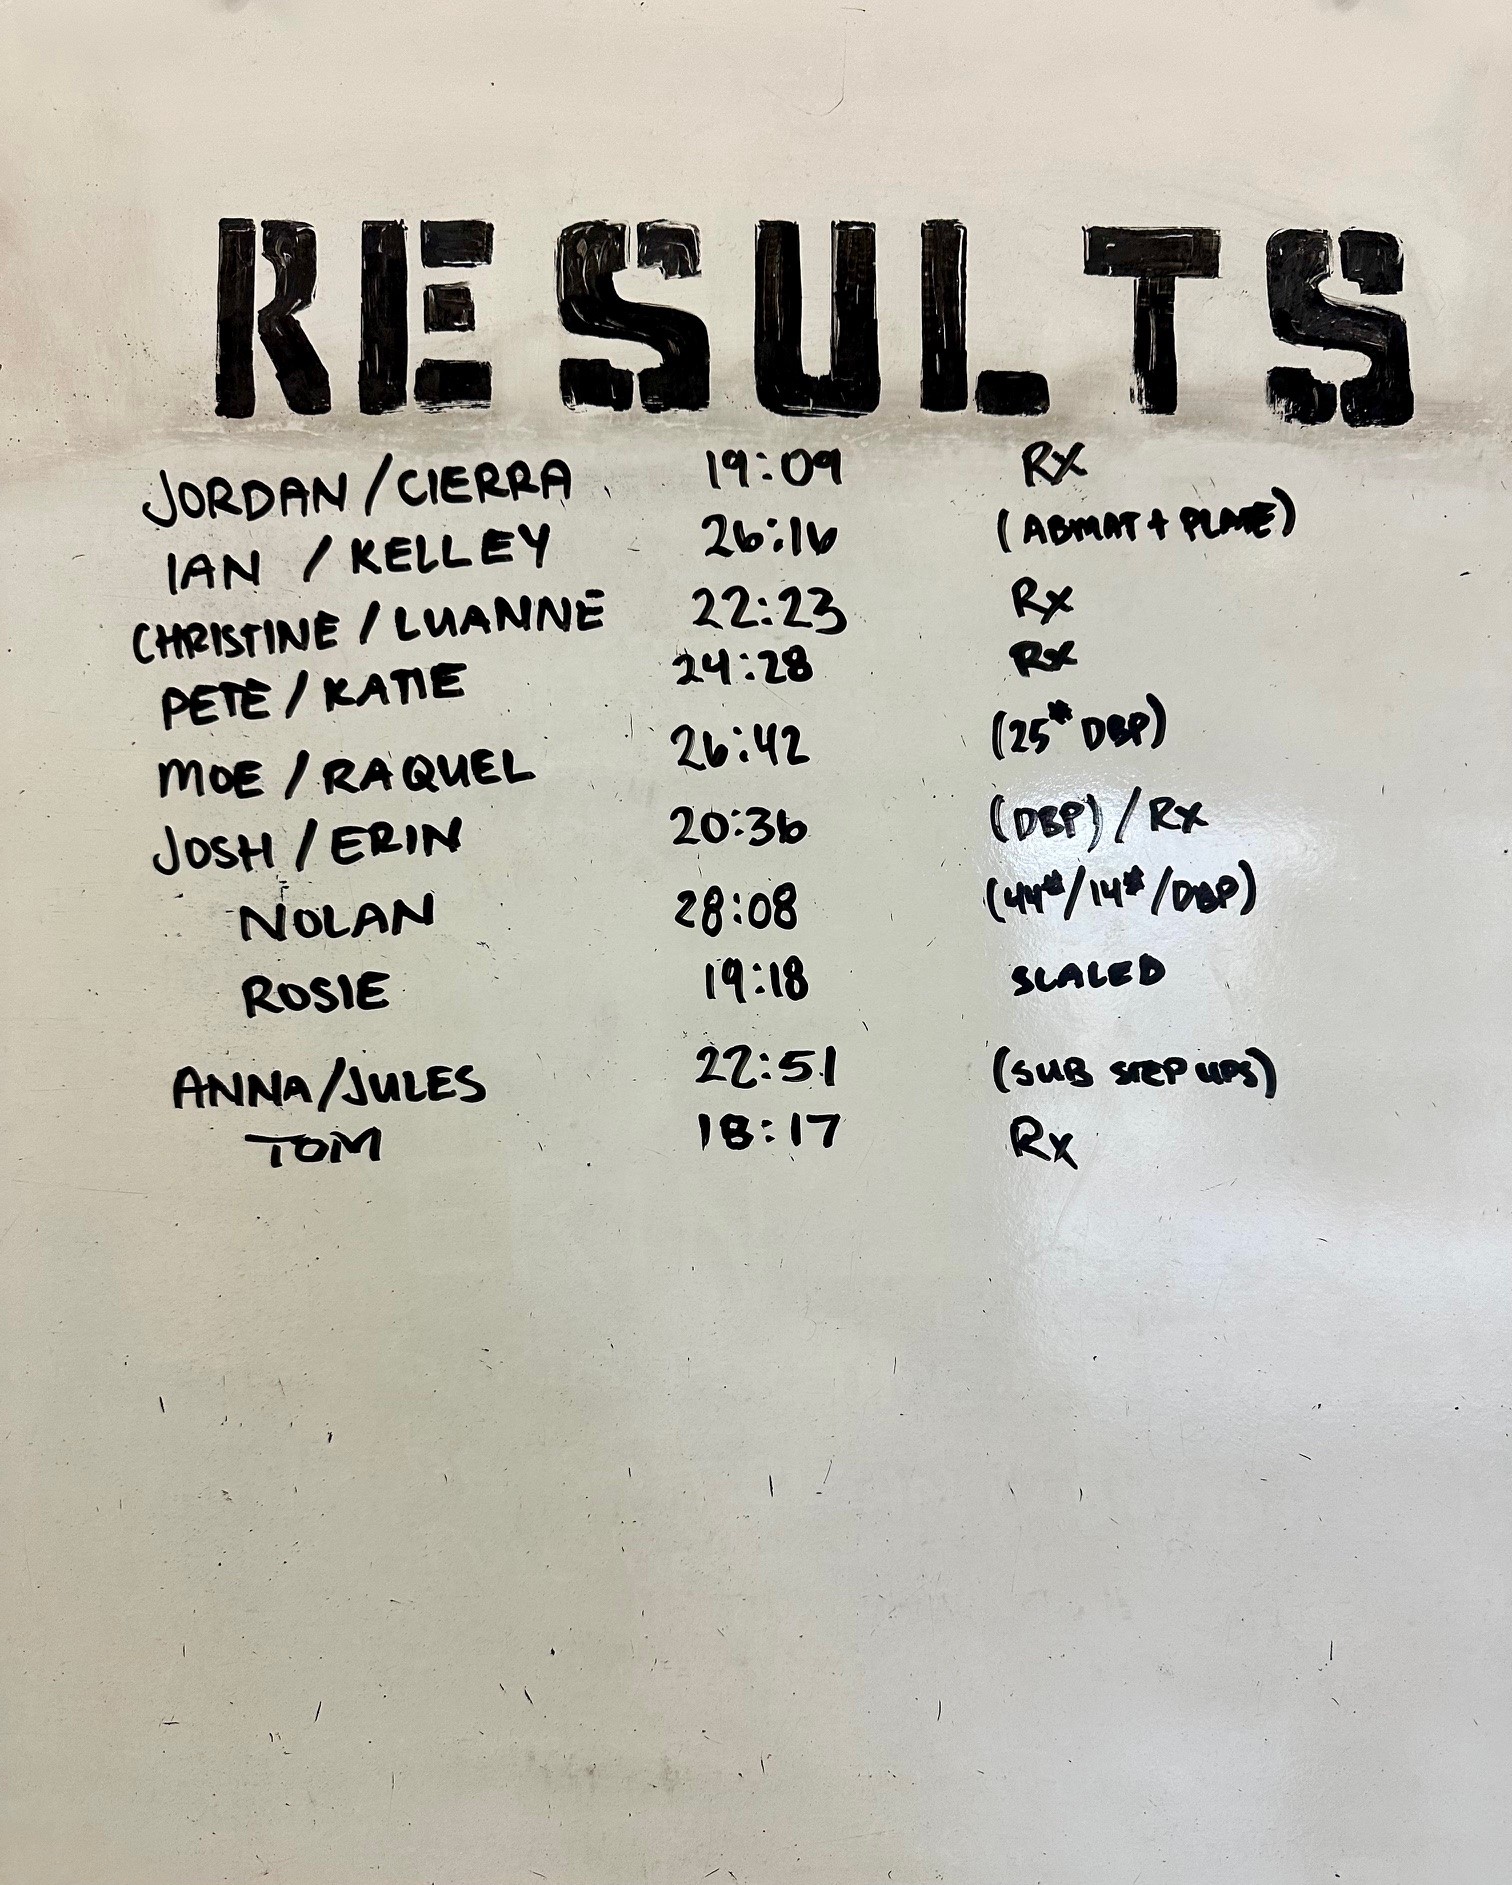 RESULTS
JORDAN / CIERRA 19:09 Rx
IAN / KELLEY 26:16 (ABMAT + PLATE)
CHRISTINE / LUANNE 22:23 Rx
PETE / KATIE 24:28 Rx
MOE / RAQUEL 26:42 (25# DBP)
JOSH / ERIN 20:36 (DBP) / Rx
NOLAN 28:08 (44#/14#/DBP)
ROSIE 19:18 SCALED
ANNA/JULES 22:51 (SUB STEP UPS)
TOM 18:17 Rx